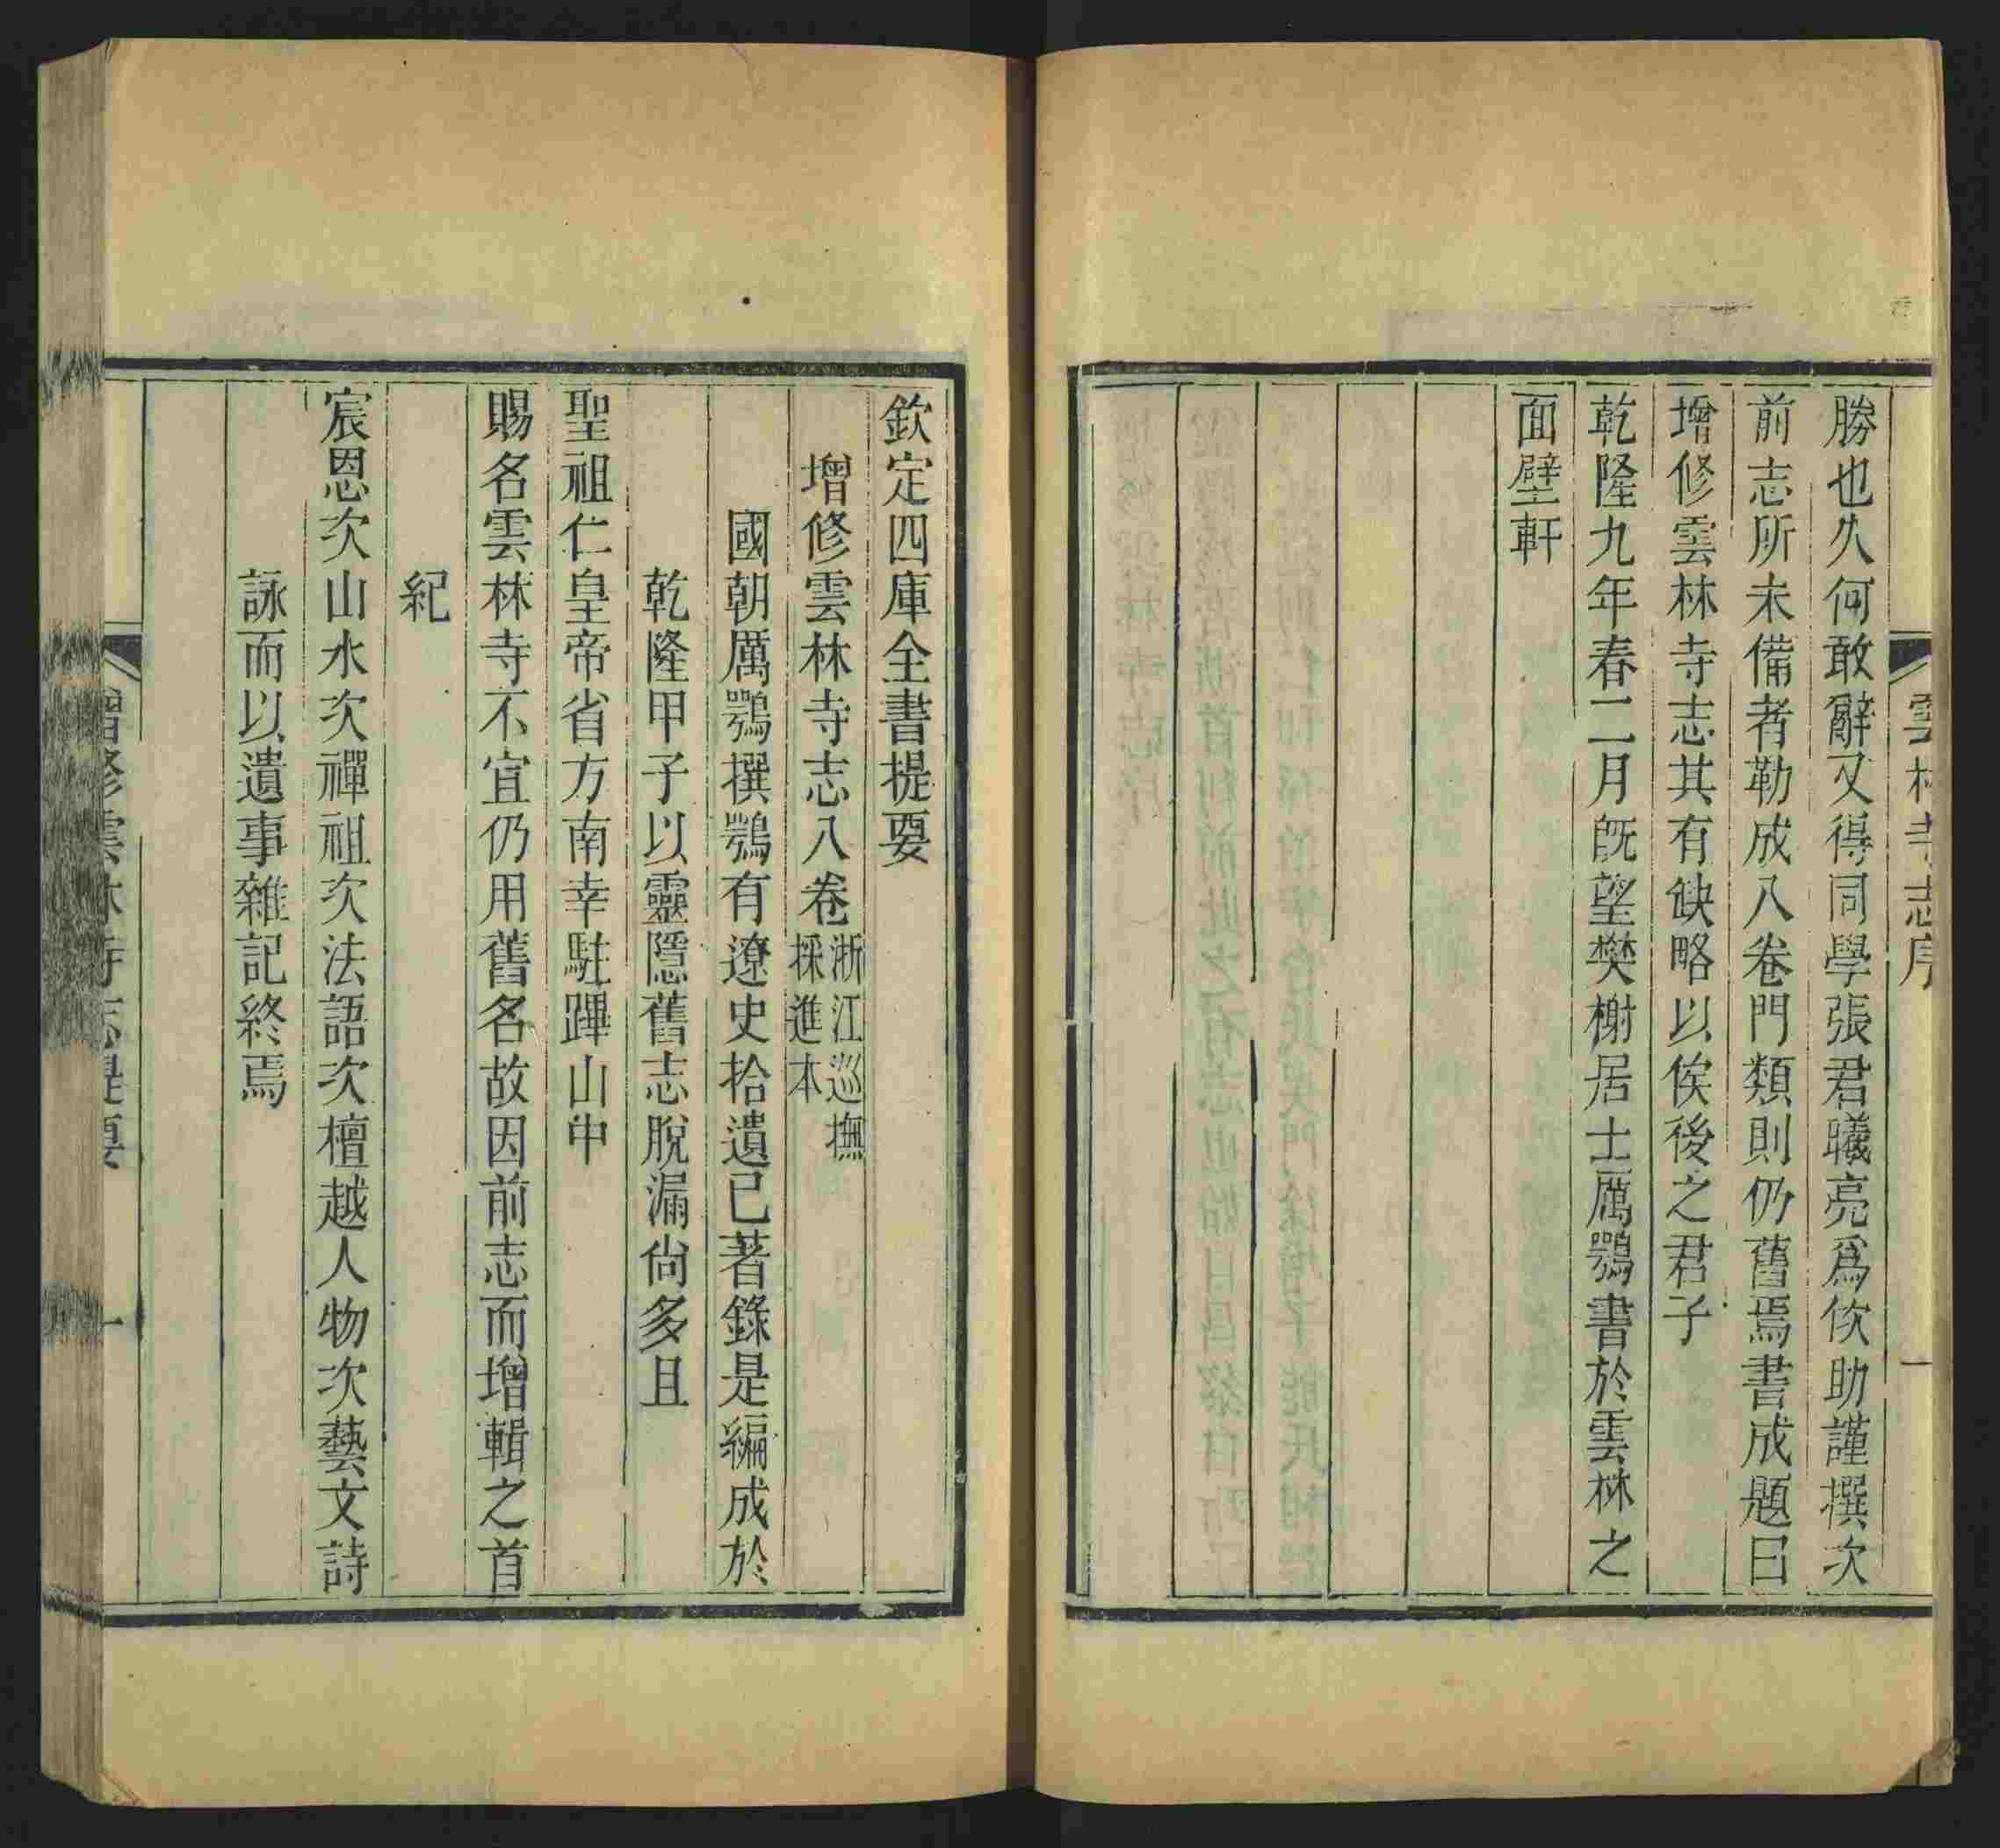 雲林寺志序 一
勝也久何敢辭又得同學張君曦亮爲佽助謹撰次
前志所未備者勒成八卷門類則仍舊焉書成題曰
增修雲林寺志其有缺略以俟後之君子
乾隆九年春二月旣望樊榭居士厲鶚書於雲林之
面壁軒
欽定四庫全書提要
增修雲林寺志八卷浙江巡撫採進本
國朝厲鶚撰鶚有遼史拾遺已著錄是編成於
乾隆甲子以靈隱舊志脫漏尙多且
聖祖仁皇帝省方南幸駐蹕山中
賜名雲林寺不宜仍用舊名故因前志而增輯之首
紀
宸恩次山水次禪祖次法語次檀越人物次藝文詩
詠而以遺事雜記終焉
增修雲林寺志提要 一